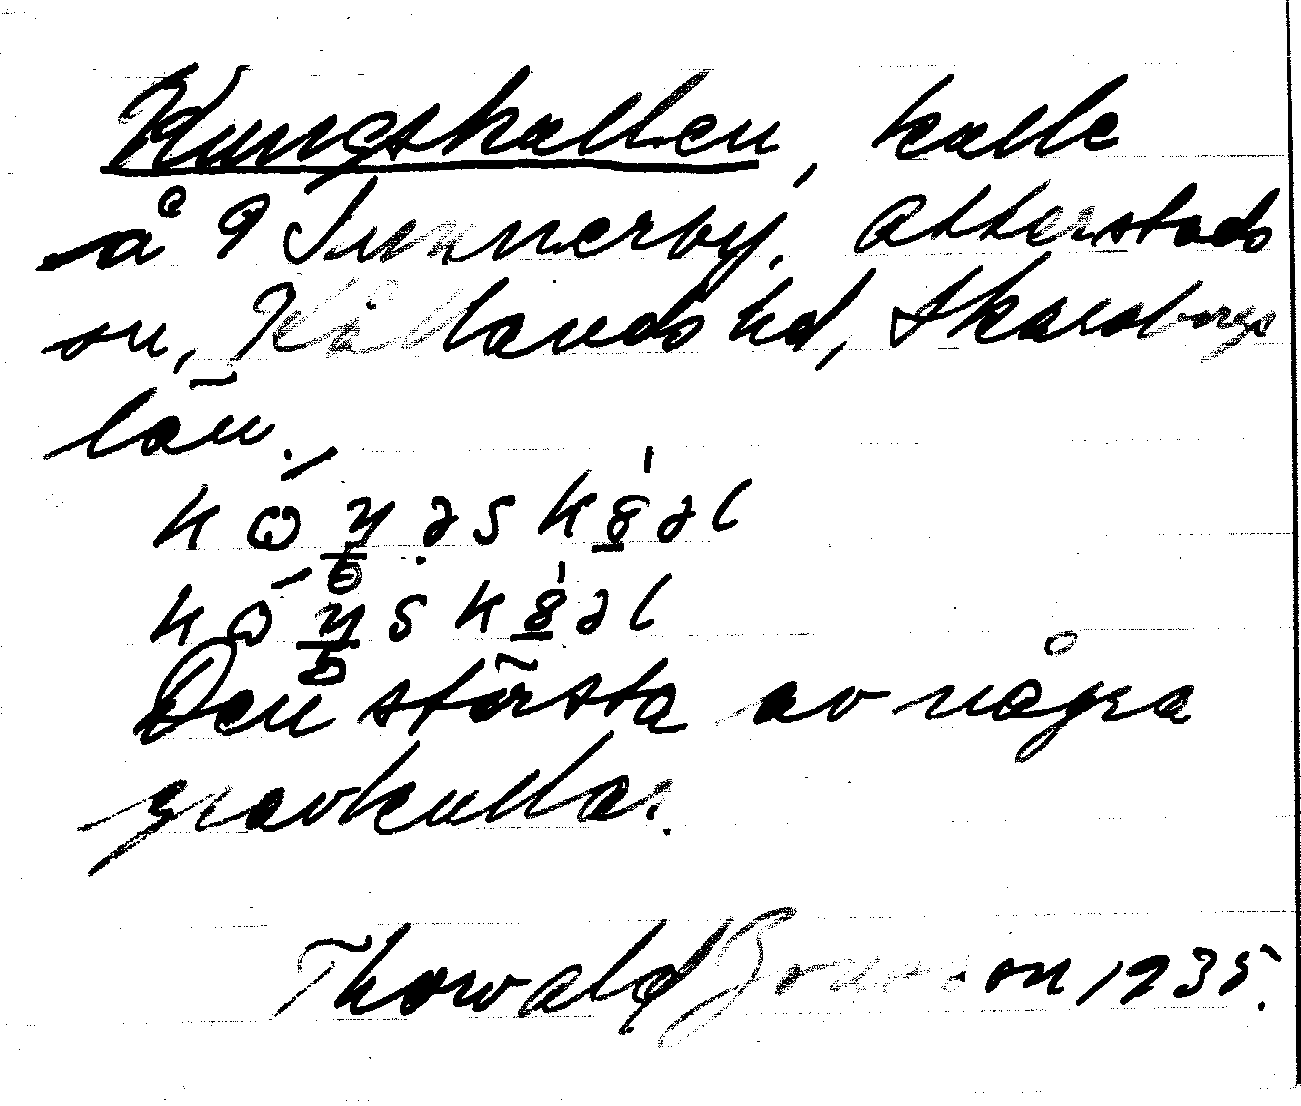 Kungskullen, kulle
å ♀ Tunnerby, Otterstads
sn, Kållands hd, Skaraborgs
län.
Den största av några
gravkullar.
Thorwald Jonsson 1935.